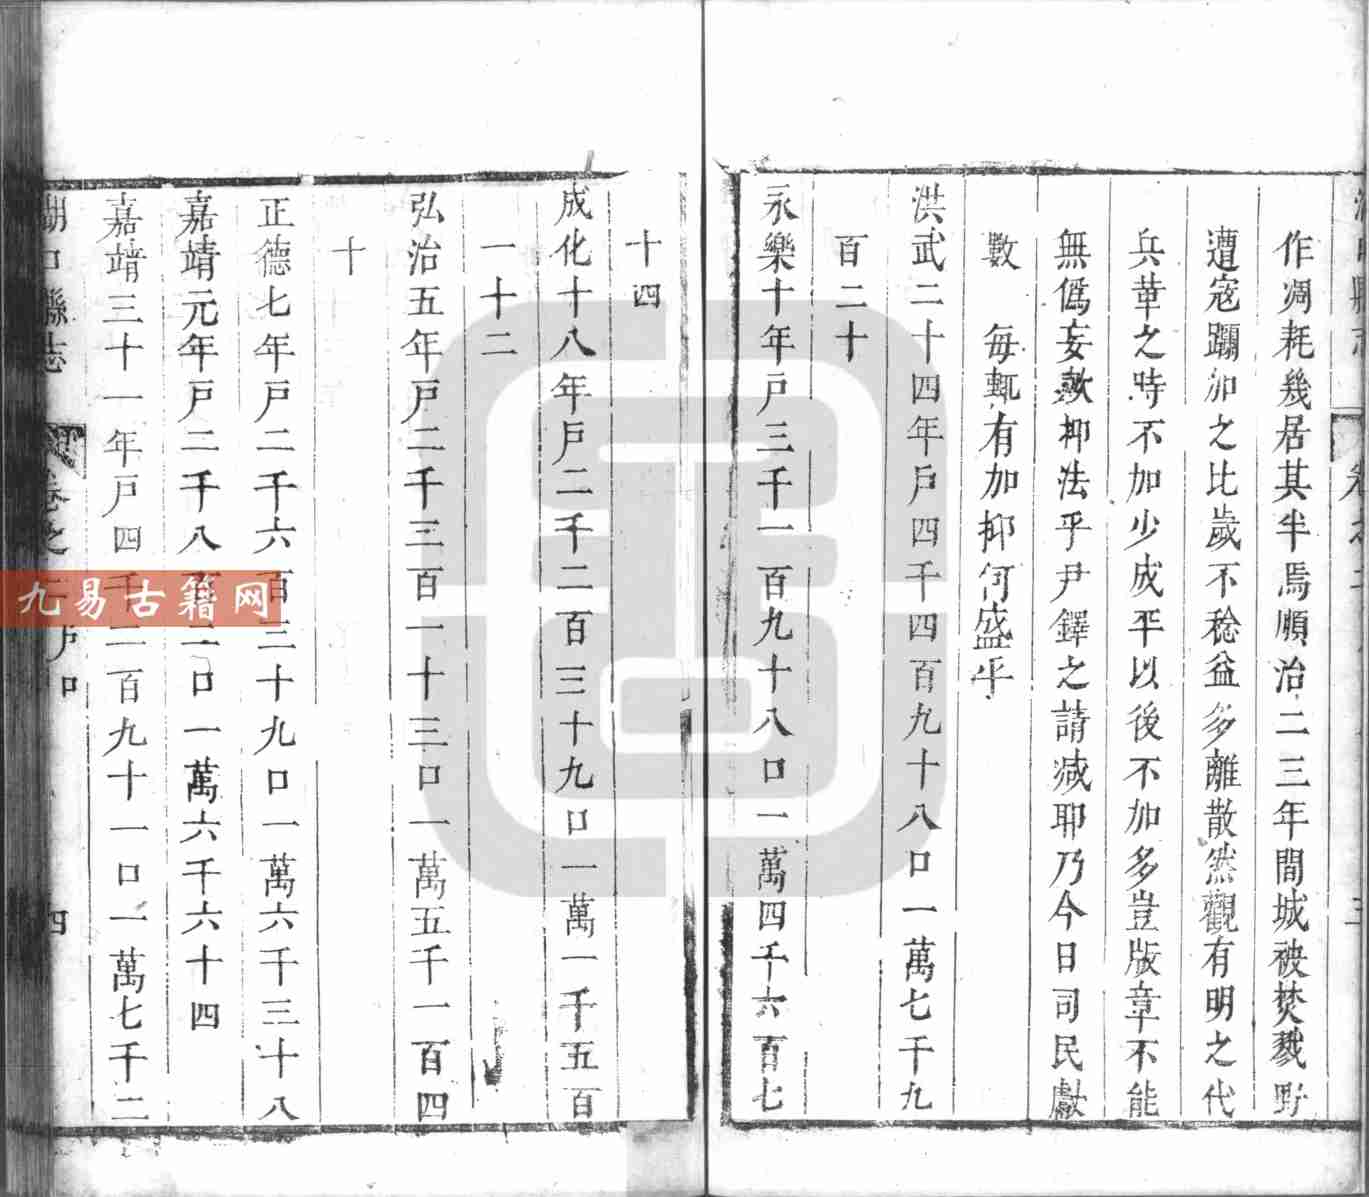 作凋耗幾居其半焉順治二三年間城被焚戮野
遭寇躪加之比歲不稔益多離散然觀有明之代
兵革之時不加少成平以後不加多豈版章不能
無僞妄歟抑法乎尹鐸之請减耶乃今日司民獻
數 每輒有加抑何盛乎
洪武二十四年戶四千四百九十八口一萬七千九
百二十
永樂十年戶三千一百九十八口一萬四千六百七
十四
成化十八年戶二千二百三十九口一萬一千五百
一十二
弘治五年戶二千三百一十三口一萬五千一百四
十
正德七年戶二千六百三十九口一萬六千三十八
嘉靖元年戶二千八百二口一萬六千六十四
嘉靖三十一年戶四千二百九十一口一萬七千二
湖口縣志 卷之 戶口 四
九易古籍网